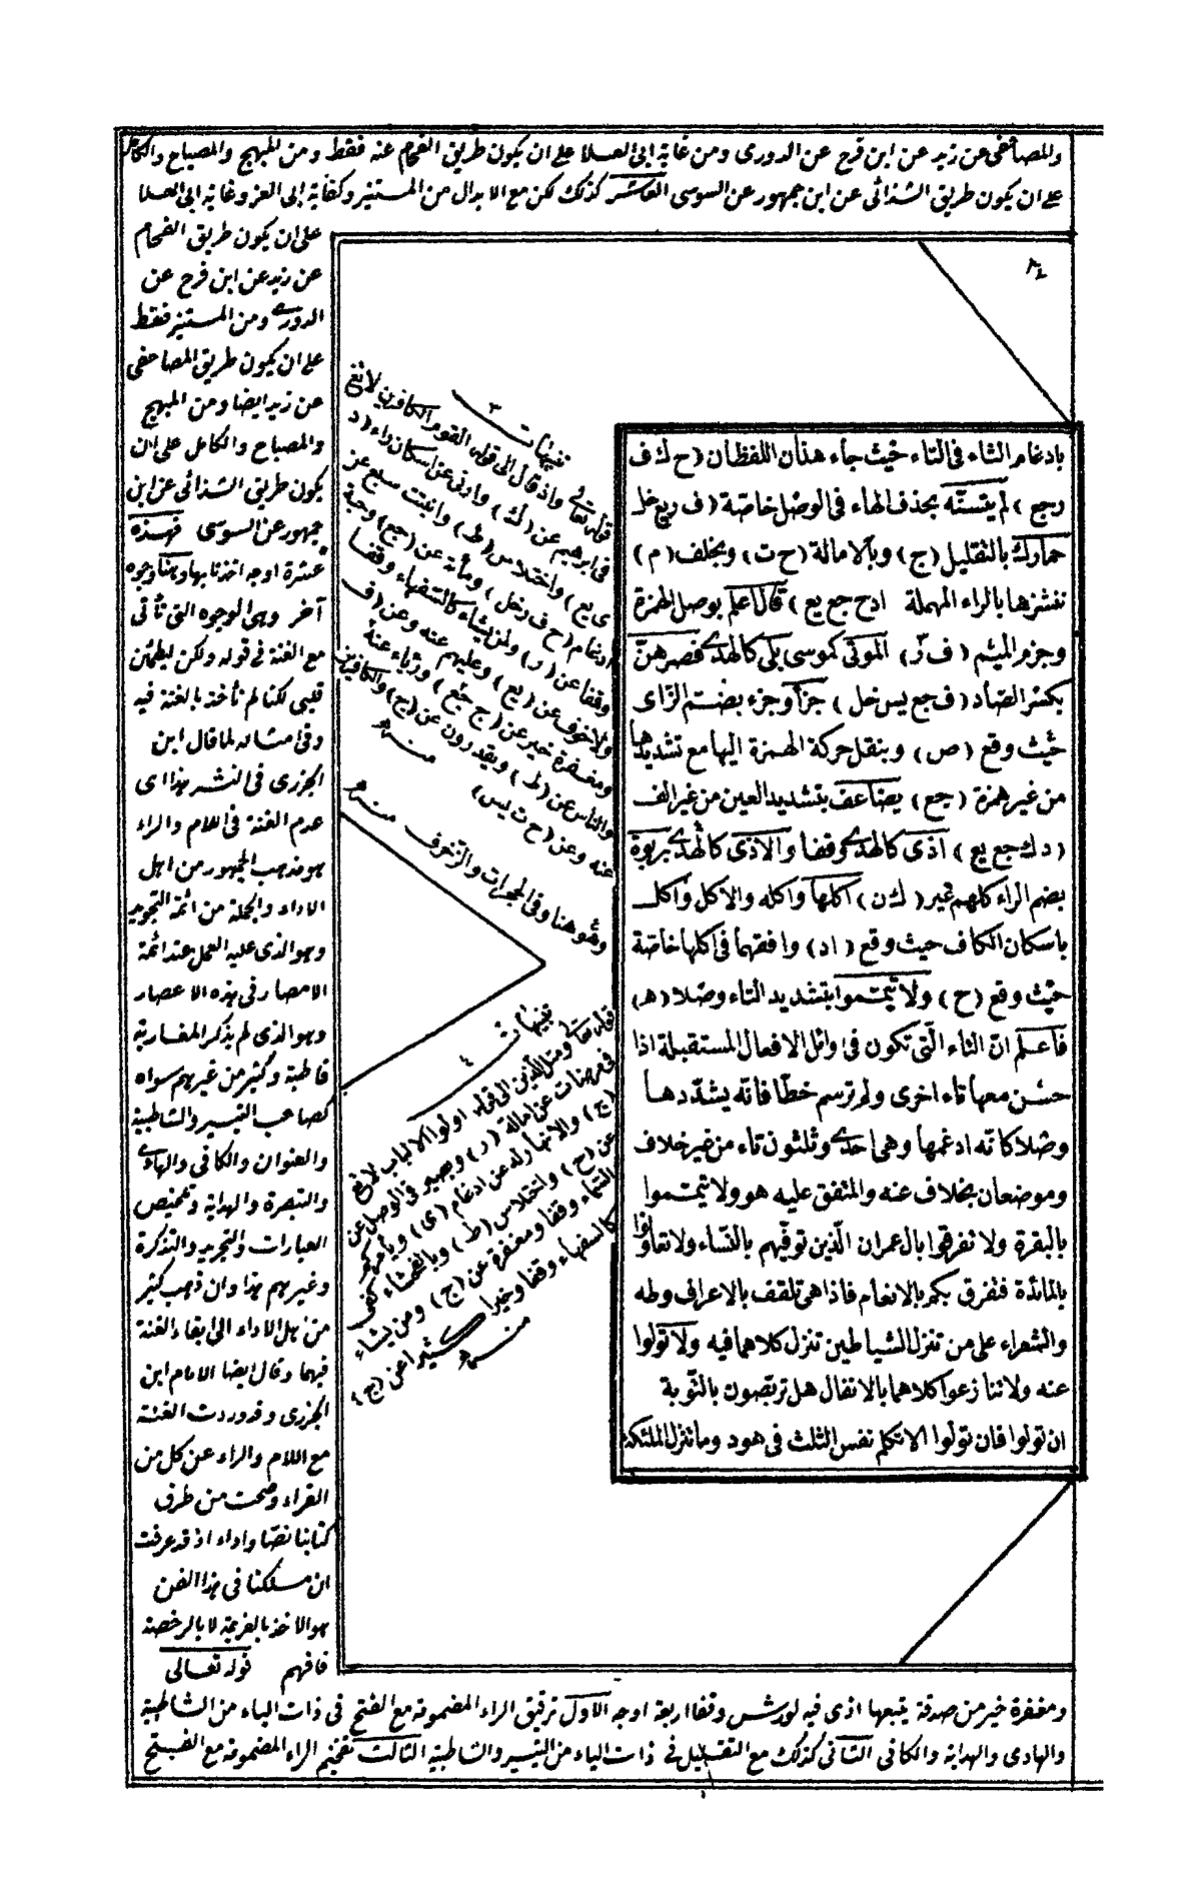 والمصاحفى عن زيد عن ابن فرح عن الدورى ومن غاية ابى العلا على ان يكون طريق الفحام عنه فقط ومن المبهج والمصباح والكامل
على ان يكون طريق الشذائى عن ابن جمهور عن السوسى العاشر كذلك لكن مع الابدال من المستنير وكفاية ابى العز وغاية ابى العلا
على ان يكون طريق الفحام
عن زيد عن ابن فرح عن
الدورى ومن المستنير فقط
على ان يكون طريق المصاحفى
عن زيد ايضا ومن المبهج
والمصباح والكامل على ان
يكون طريق الشذائى عن ابن
جمهور عن السوسى فهذه
عشرة اوجه اخذنا بها وهنا وجوه
آخر وهى الوجوه التى تأتى
مع الغنة فى قوله ولكن ليطمئن
قلبى لكنا لم نأخذ بالغنة فيه
وفى امثاله لما قال ابن
الجزرى فى النشر هذا اى
عدم الغنة فى اللام والراء
هو مذهب الجمهور من اهل
الاداء والجلة من ائمة التجويد
وهو الذى عليه العمل عند ائمة
الامصار فى هذه الاعصار
وهو الذى لم يذكر المغاربة
قاطبة وكثير من غيرهم سواه
كصاحب التيسير والشاطبية
والعنوان والكافى والهادى
والتبصرة والهداية وتلخيص
العبارات والتجريد والتذكرة
وغيرهم هذا وان ذهب كثير
من اهل الاداء الى ابقاء الغنة
فيهما وقال ايضا الامام ابن
الجزرى وقد وردت الغنة
مع اللام والراء عن كل من
القراء وصحت من طرق
كتابنا نصّا واداء اذ قد عرفت
ان مسلكنا فى هذا الفن
هو الاخذ بالعزيمة لا بالرخصة
فافهم قوله تعالى
ومغفرة خير من صدقة يتبعها اذى فيه لورش وقفا اربعة اوجه الاول ترقيق الراء المضمومة مع الفتح فى ذات الياء من الشاطبية
والهادى والهداية والكافى الثانى كذلك مع التقليل فى ذات الياء من التيسير والشاطبية الثالث تفخيم الراء المضمومة مع الفتح
٢٤
بادغام الثاء فى التاء حيْث جاء هذان اللفظان (ح ك ف
رجع) لم يتسنّه بحذف الهاء فى الوصْل خاصّة (ف ريع خل
حمارك بالتقليل (ج) وبالامالة (ح ت) وبخلف (م)
ننشزها بالراء المهملة ادح جع يع) قال اعلم بوصل الهمزة
وجزم الميْم (ف ر) الموتى كموسى بلى كالهدى فصرهنّ
بكسْر الصّاد (ف جع يس خل) جزأ وجزء بضمّ الزاى
حيْث وقع (ص) وبنقل حركة الهمزة اليها مع تشديدها
من غير همزة (جع) يضاعف بتشديد العين من غير الف
(د ك جع يع) اذى كالهدى وقفا والاذى كالهدى بربوة
بضم الراء كلهم غير (ك ن) اكلها واكله والاكل واكل
باسكان الكاف حيث وقع (اد) وافقهما فى اكلها خاصّة
حيْث وقع (ح) ولا تيمّموا بتشديد التاء وصْلا (هـ)
فاعلم انّ التاء الّتى تكون فى اوائل الافعال المستقبلة اذا
حسُن معها تاء اخرى ولم ترسم خطّا فانّه يشدّدها
وصْلا كانّه ادغمها وهى احدى وثلثون تاء من غير خلاف
وموضعان بخلاف عنه والمتفق عليه هو ولا تيمّموا
بالبقرة ولا تفرقوا بال عمران الّذين توفّيهم بالنّساء ولا تعاونوا
بالمائدة فتفرق بكم بالانعام فاذا هى تلقف بالاعراف وطه
والشعراء على من تنزل الشياطين تنزل كلاهما فيه ولا تولوا
عنه ولا تنازعوا كلاهما بالانفال هل تربّصون بالتّوبة
ان تولوا فان تولوا لا تكلم نفس الثلث فى هود وما تنزل الملئكة
تنبيهات ٣
قوله تعالى واذ قال الى قوله القوم الكافرين لا تغ
فى ابرهيم عن (ك) وارنى عن اسكان راء (د
ى يع) واختلاس (ط) وانبتت سبع عن
ادغام (ح ف ر خل) ومائة عن (جع) وحبة
وقفا عن (ر) ولمن يشاء كالسفهاء وقفا
ولا خوف عن (يع) وعليهم عنه وعن (ف
ومغفرة خير عن (ج جع) ورئاء عنه
والناس عن (ط) ويقدرون عن (ج) والكافرين
عنه وعن (ح ت يس) منه
وهو هنا وفى الحجرات والزخرف منه
تنبيهات ٤
قوله تعالى ومثل الذين الى قوله اولوا الالباب لا تغ
فى مرضات عن امالة (ر) وبصير فى الوصل عن
(ج) والانهار له عن ادغام (ى) ويأمركم
عن (ح) واختلاس (ط) وبالفحشاء كفى
السّماء وقفا ومغفرة عن (ج) ومن يشاء
كالسفهاء وقفا وخيرا كثيرا عن (ج)
منه